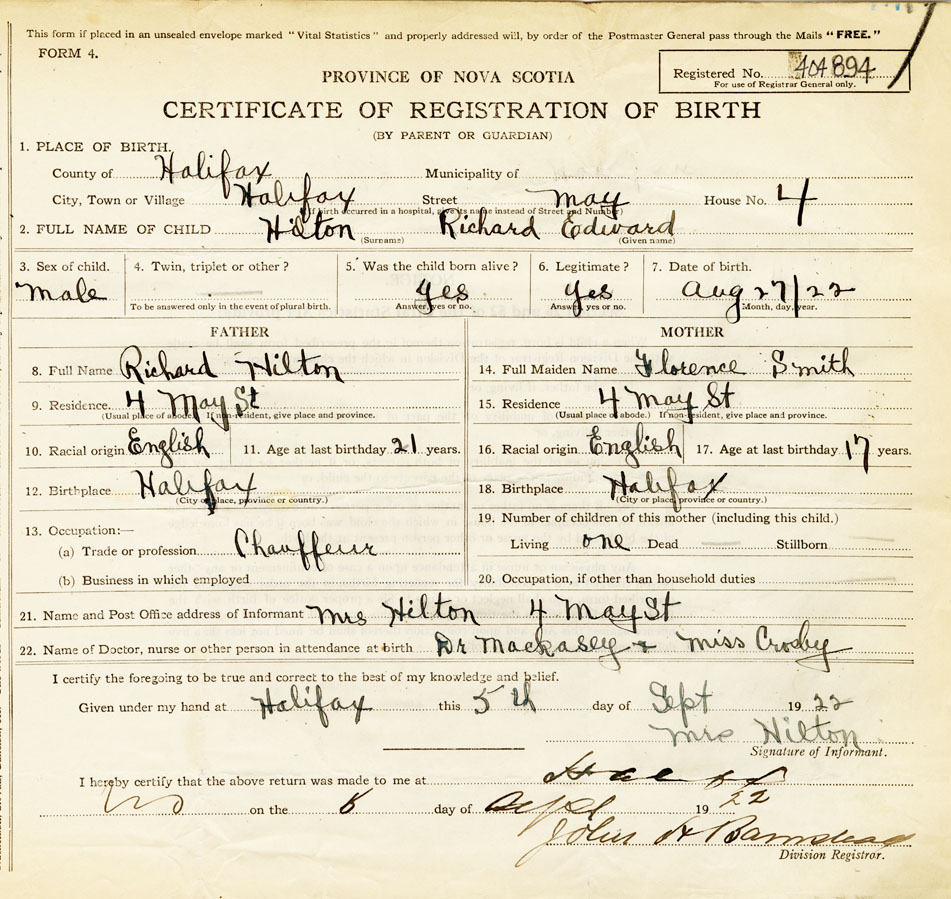 This form if placed in an unsealed envelope marked "Vital Statistics" and properly addressed will, by order of the Postmaster General pass through the Mails "FREE."
FORM 4.
PROVINCE OF NOVA SCOTIA
Registered No. 404894
For use of Registrar General only.
CERTIFICATE OF REGISTRATION OF BIRTH
(BY PARENT OR GUARDIAN)
1. PLACE OF BIRTH.
County of Halifax Municipality of
City, Town or Village Halifax Street May House No. 4
(If birth occurred in a hospital, give its name instead of Street and Number)
2. FULL NAME OF CHILD Hilton Richard Edward
(Surname) (Given name)
3. Sex of child. 4. Twin, triplet or other? 5. Was the child born alive? 6. Legitimate? 7. Date of birth.
Male yes yes Aug 27/22
To be answered only in the event of plural birth. Answer, yes or no. Answer, yes or no. Month, day, year.
FATHER MOTHER
8. Full Name Richard Hilton 14. Full Maiden Name Florence Smith
9. Residence. 4 May St 15. Residence 4 May St
(Usual place of abode.) If non-resident, give place and province. (Usual place of abode.) If non-resident, give place and province.
10. Racial origin English 11. Age at last birthday 21 years. 16. Racial origin English 17. Age at last birthday 17 years.
12. Birthplace Halifax 18. Birthplace Halifax
(City or place, province or country.) (City or place, province or country.)
13. Occupation:— 19. Number of children of this mother (including this child.)
(a) Trade or profession Chauffeur Living one Dead Stillborn
(b) Business in which employed 20. Occupation, if other than household duties
21. Name and Post Office address of Informant Mrs Hilton 4 May St
22. Name of Doctor, nurse or other person in attendance at birth Dr Mackasey + Miss Crosby
I certify the foregoing to be true and correct to the best of my knowledge and belief.
Given under my hand at Halifax this 5th day of Sept 1922
Mrs Hilton
Signature of Informant.
I hereby certify that the above return was made to me at
on the day of 1922
John H Barnstead
Division Registrar.